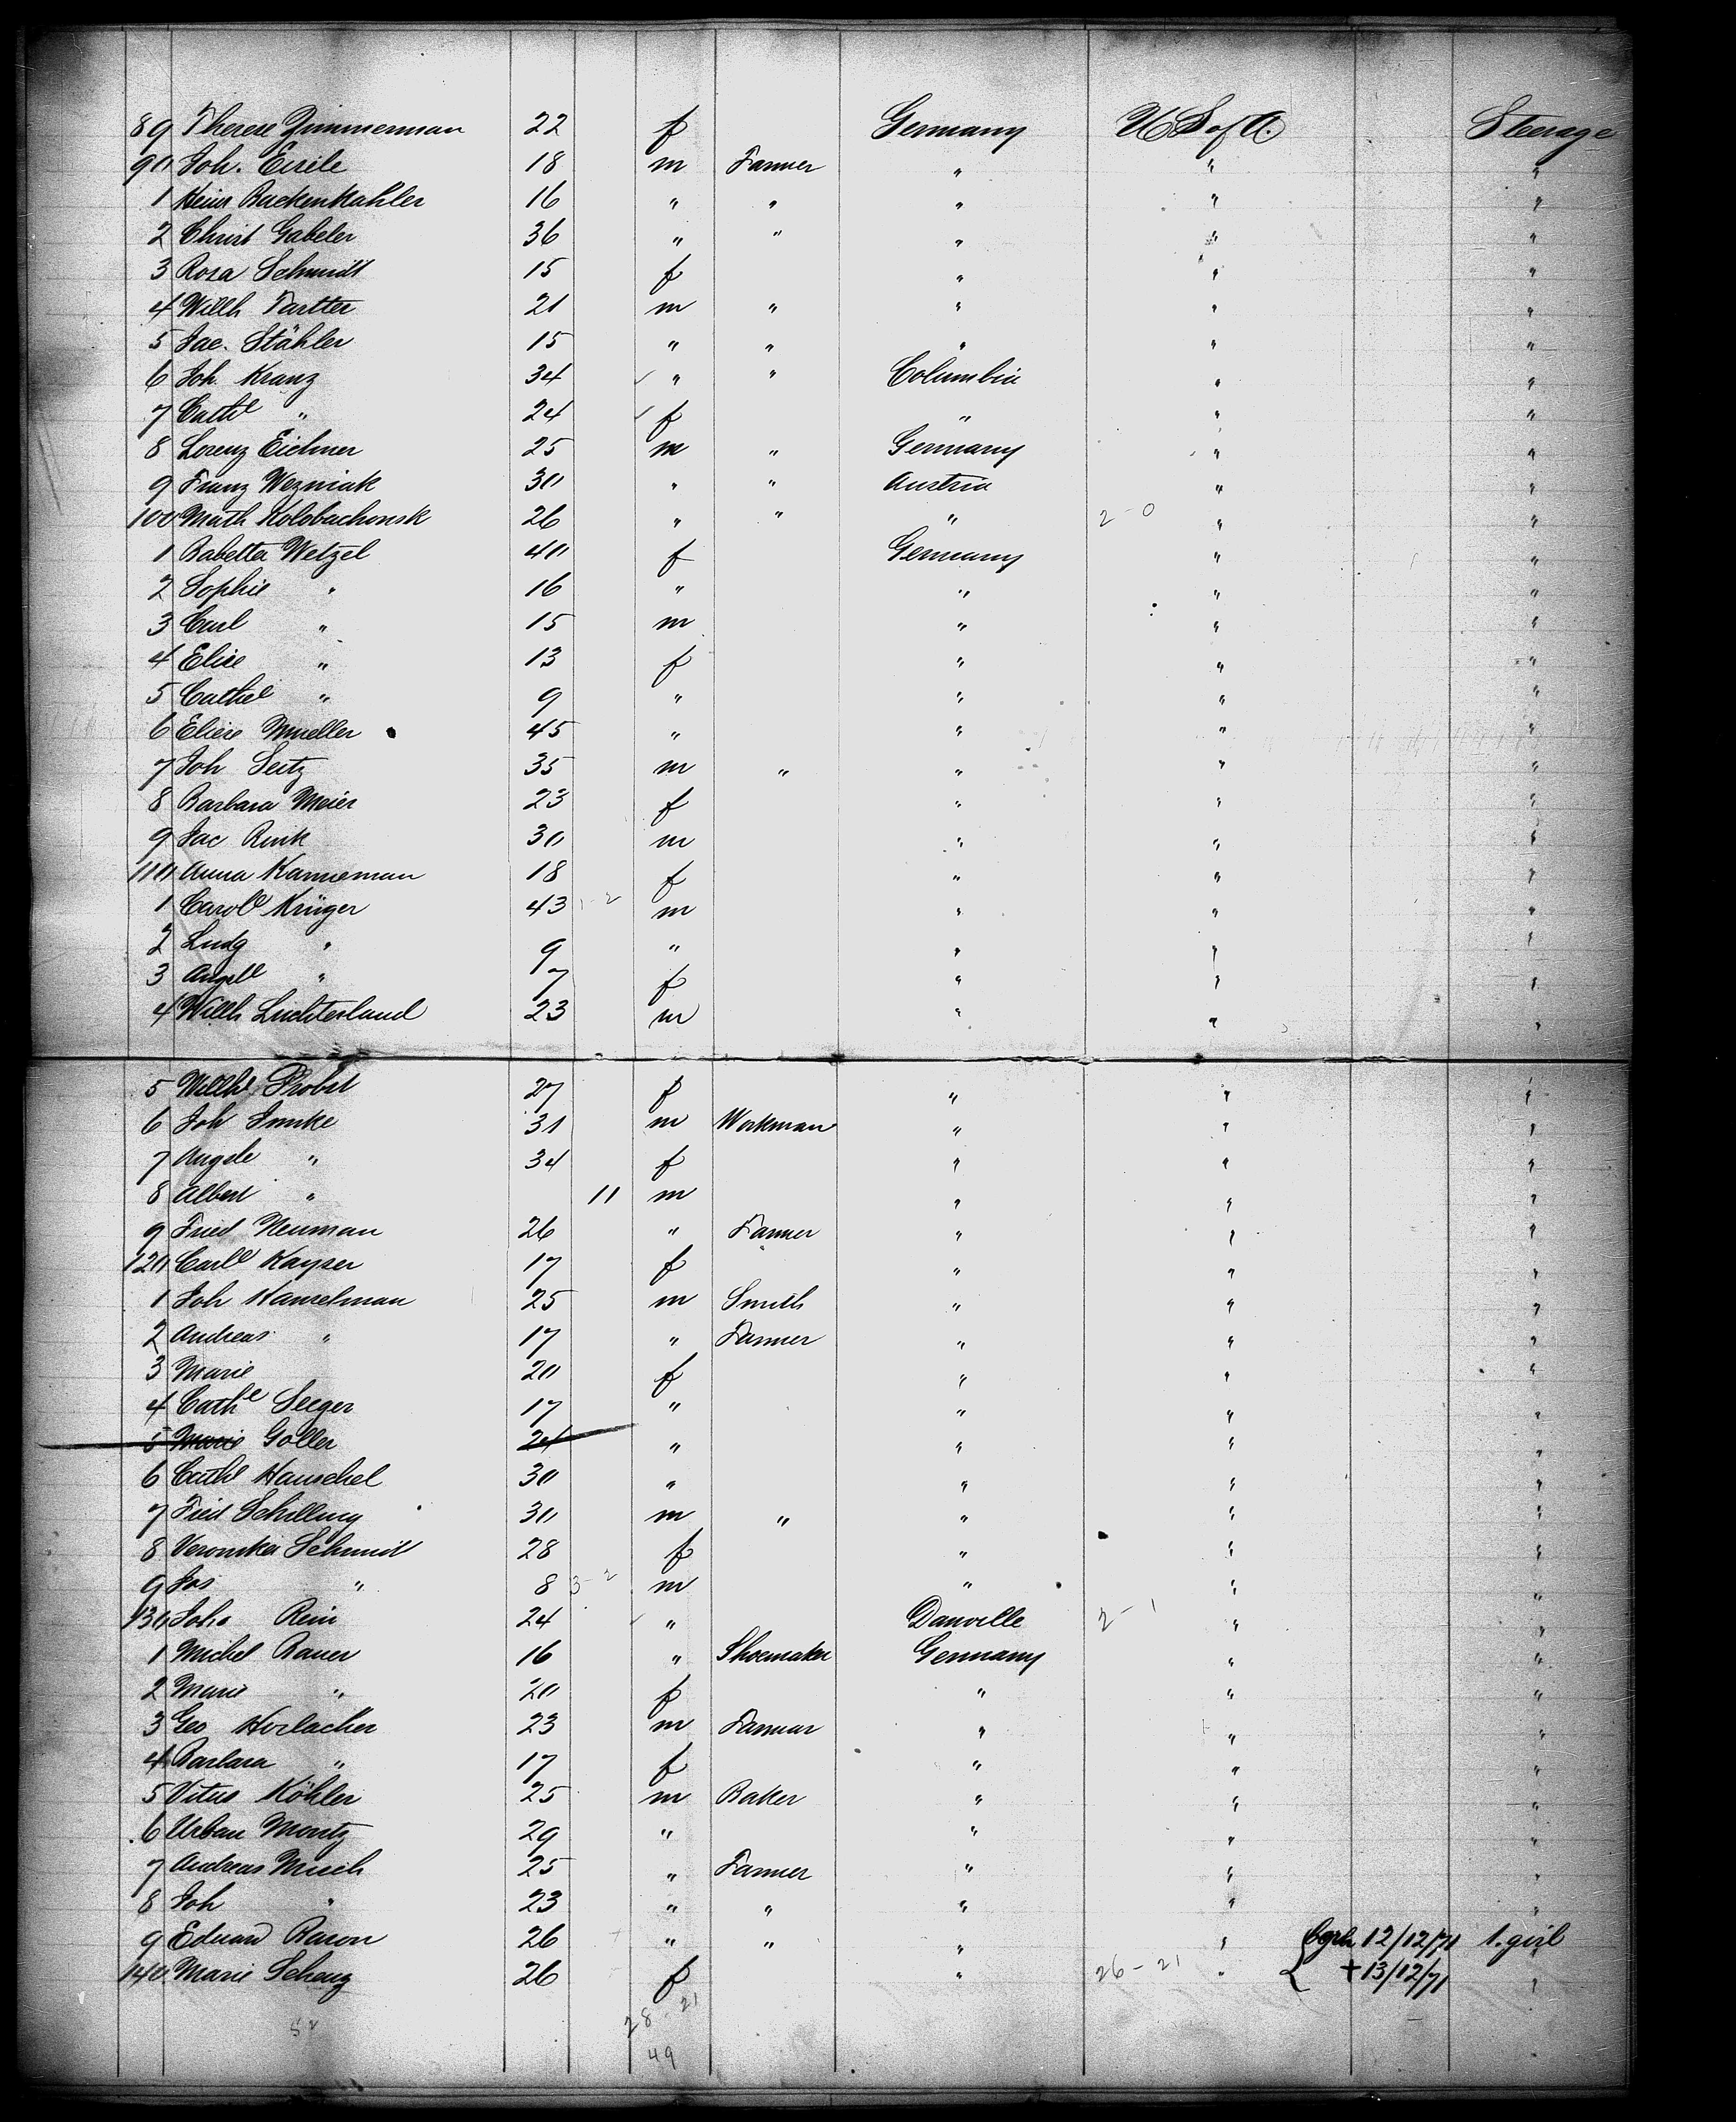 89 Therese Zimmerman 22 f Germany U S of A. Steerage
90 Joh. Eisile 18 m Farmer " " "
1 Heinr Backenkahler 16 " " " " "
2 Christ Gabeler 36 " " " " "
3 Rosa Schmidt 15 f " " "
4 Willh 21 m " " " "
5 Jac. Stähler 15 " " " " "
6 Joh. Kranz 34 " " Columbia " "
7 Cathe " 24 f " " "
8 Lorenz Eichner 25 m " Germany " "
9 Franz Wezniak 30 " " Austria " "
100 Math Kolobachonsk 26 " " " 2-0 " "
1 Babetta Wetzel 40 f Germany " "
2 Sophie " 16 " " " "
3 Carl " 15 m " " "
4 Elise " 13 f " " "
5 Cathe " 9 " " " "
6 Eliese Mueller 45 " " " "
7 Joh Seitz 35 m " " " "
8 Barbara Meier 23 f " " "
9 Jac Rink 30 m " " "
110 Anna Kanneman 18 f " " "
1 Carole Krüger 43 1-2 m " " "
2 Ludg " 9 " " " "
3 Angele " 7 f " " "
4 Willh Lichterland 23 m " " "
5 Willhe Probst 27 f " " "
6 Joh Imke 31 m Workman " " "
7 Angele " 34 f " " "
8 Albert " 11 m " " "
9 Fried Neuman 26 " Farmer " " "
120 Carle Kayser 17 f " " "
1 Joh Hanselman 25 m Smith " " "
2 Andreas " 17 " Farmer " " "
3 Marie 20 f " " "
4 Cathe Seeger 17 " " " "
5 Marie Goller 24 " " " "
6 Cathe Hauschel 30 " " " "
7 Fried Schilling 30 m " " " "
8 Veronika Schmidt 28 f " " "
9 Jos " 8 3-2 m " " "
130 Johs Rein 24 " Danville 2-1 " "
1 Michel Bauer 16 " Shoemaker Germany " "
2 Marie " 20 f " " "
3 Geo Horlacher 23 m Farmer " " "
4 Barbara " 17 f " " "
5 Vitus Köhler 25 m Baker " " "
6 Urban Montz 29 " " " "
7 Andreas Musch 25 " Farmer " " "
8 Joh " 23 " " " " "
9 Eduard Baron 26 " " " " 12/12/71 1. girl
140 Marie Schenz 26 f " 26-21 " + 13/12/71 "
28-21
52
49